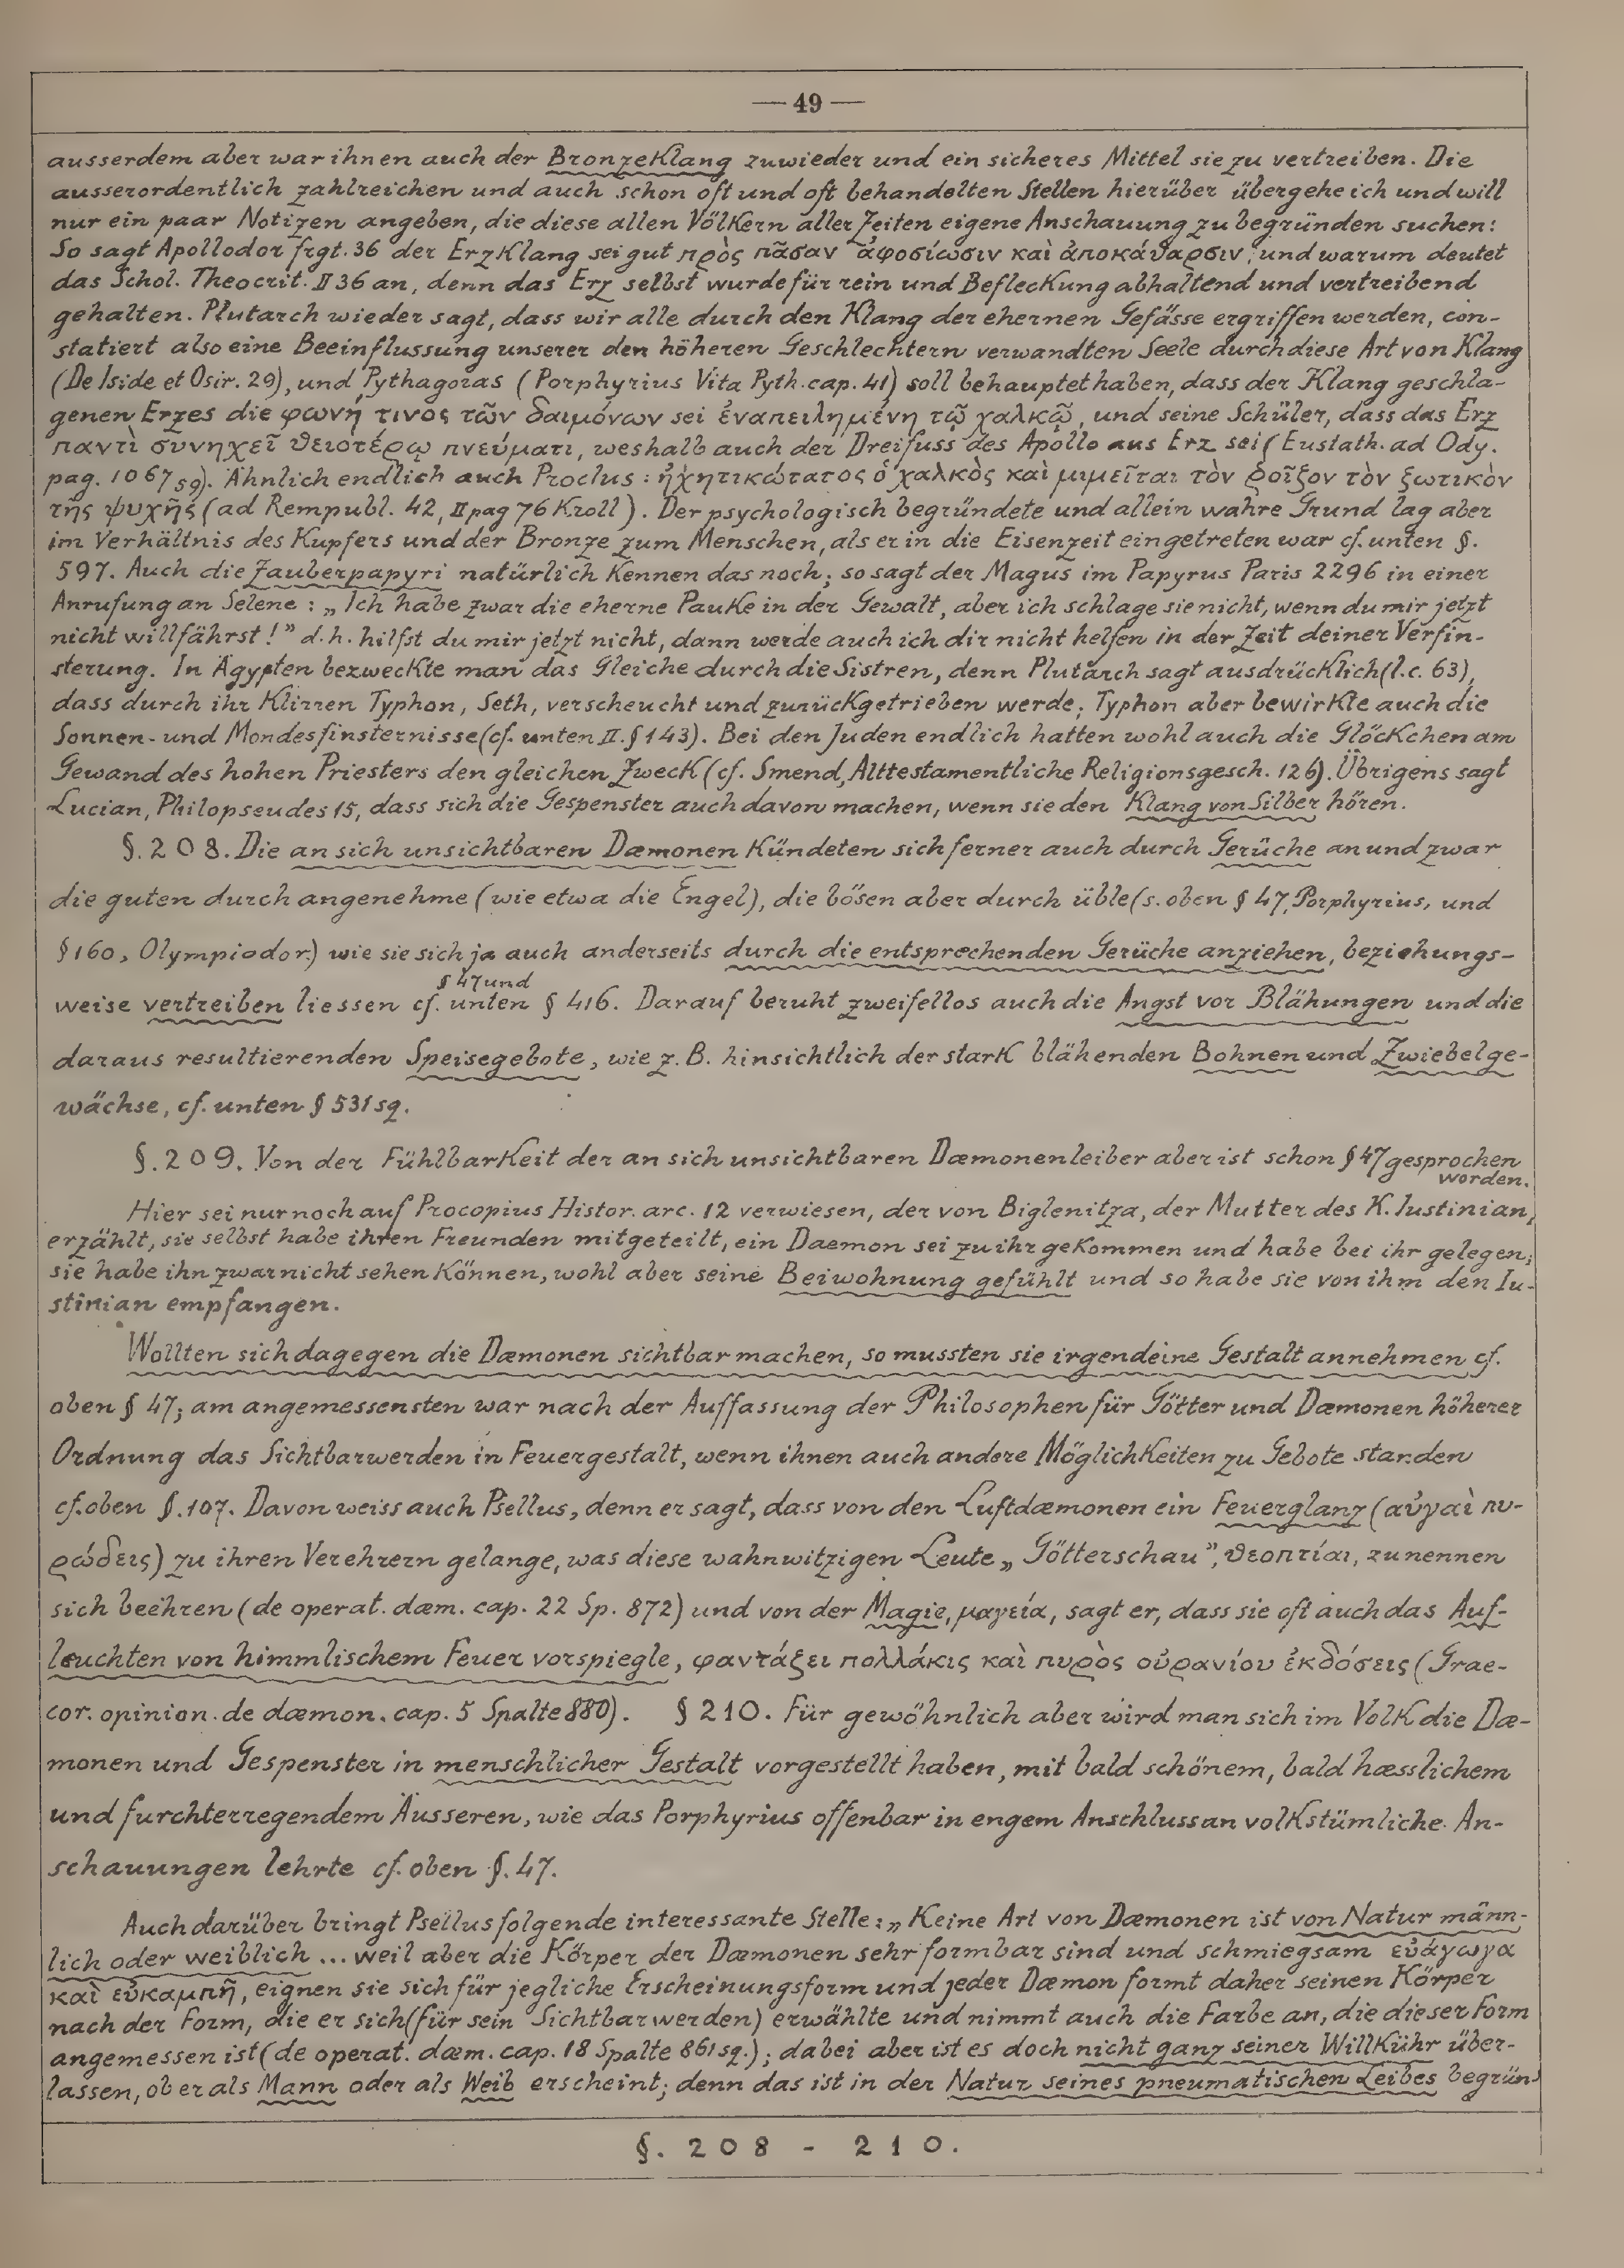 — 49 —
ausserdem aber war ihnen auch der Bronzeklang zuwieder und ein sicheres Mittel sie zu vertreiben. Die
ausserordentlich zahlreichen und auch schon oft und oft behandelten Stellen hierüber übergehe ich und will
nur ein paar Notizen angeben, die diese allen Völkern aller Zeiten eigene Anschauung zu begründen suchen:
So sagt Apollodor frgt. 36 der Erzklang sei gut πρὸς πᾶσαν ἀφοσίωσιν καὶ ἀποκάθαρσιν; und warum deutet
das Schol. Theocrit. II 36 an, denn das Erz selbst wurde für rein und Befleckung abhaltend und vertreibend
gehalten. Plutarch wieder sagt, dass wir alle durch den Klang der ehernen Gefässe ergriffen werden, con-
statiert also eine Beeinflussung unserer den höheren Geschlechtern verwandten Seele durch diese Art von Klang
(De Iside et Osir. 29), und Pythagoras (Porphyrius Vita Pyth. cap. 41) soll behauptet haben, dass der Klang geschla-
genen Erzes die φωνή τινος τῶν δαιμόνων sei ἐναπειλημένη τῷ χαλκῷ, und seine Schüler, dass das Erz
παντὶ συνηχεῖ θειοτέρῳ πνεύματι, weshalb auch der Dreifuss des Apollo aus Erz sei (Eustath. ad Ody.
pag. 1067 59). Ähnlich endlich auch Proclus: ἠχητικώτατος ὁ χαλκὸς καὶ μιμεῖται τὸν ῥοῖζον τὸν ζωτικὸν
τῆς ψυχῆς (ad Rempubl. 42, II pag 76 Kroll). Der psychologisch begründete und allein wahre Grund lag aber
im Verhältnis des Kupfers und der Bronze zum Menschen, als er in die Eisenzeit eingetreten war cf. unten §.
597. Auch die Zauberpapyri natürlich kennen das noch; so sagt der Magus im Papyrus Paris 2296 in einer
Anrufung an Selene: „Ich habe zwar die eherne Pauke in der Gewalt, aber ich schlage sie nicht, wenn du mir jetzt
nicht willfährst!” d. h. hilfst du mir jetzt nicht, dann werde auch ich dir nicht helfen in der Zeit deiner Verfin-
sterung. In Ägypten bezweckte man das Gleiche durch die Sistren, denn Plutarch sagt ausdrücklich (l. c. 63),
dass durch ihr Klirren Typhon, Seth, verscheucht und zurückgetrieben werde; Typhon aber bewirkte auch die
Sonnen- und Mondesfinsternisse (cf. unten II. § 143). Bei den Juden endlich hatten wohl auch die Glöckchen am
Gewand des hohen Priesters den gleichen Zweck (cf. Smend, Alttestamentliche Religionsgesch. 126). Übrigens sagt
Lucian, Philopseudes 15, dass sich die Gespenster auch davon machen, wenn sie den Klang von Silber hören.
§. 208. Die an sich unsichtbaren Dæmonen kündeten sich ferner auch durch Gerüche an und zwar
die guten durch angenehme (wie etwa die Engel), die bösen aber durch üble (s. oben § 47, Porphyrius, und
§ 160, Olympiodor) wie sie sich ja auch anderseits durch die entsprechenden Gerüche anziehen, beziehungs-
§ 47 und
weise vertreiben liessen cf. unten § 416. Darauf beruht zweifellos auch die Angst vor Blähungen und die
daraus resultierenden Speisegebote, wie z. B. hinsichtlich der stark blähenden Bohnen und Zwiebelge-
wächse, cf. unten § 531 sq.
§. 209. Von der Fühlbarkeit der an sich unsichtbaren Dæmonenleiber aber ist schon § 47 gesprochen
worden.
Hier sei nur noch auf Procopius Histor. arc. 12 verwiesen, der von Biglenitza, der Mutter des K. Iustinian,
erzählt, sie selbst habe ihren Freunden mitgeteilt, ein Daemon sei zu ihr gekommen und habe bei ihr gelegen;
sie habe ihn zwar nicht sehen können, wohl aber seine Beiwohnung gefühlt und so habe sie von ihm den Iu-
stinian empfangen.
Wollten sich dagegen die Dæmonen sichtbar machen, so mussten sie irgendeine Gestalt annehmen cf.
oben § 47; am angemessensten war nach der Auffassung der Philosophen für Götter und Dæmonen höherer
Ordnung das Sichtbarwerden in Feuergestalt, wenn ihnen auch andere Möglichkeiten zu Gebote standen
cf. oben §. 107. Davon weiss auch Psellus, denn er sagt, dass von den Luftdæmonen ein Feuerglanz (αὐγαὶ πυ-
ρώδεις) zu ihren Verehrern gelange, was diese wahnwitzigen Leute „Götterschau”, θεοπτίαι, zu nennen
sich beehren (de operat. dæm. cap. 22 Sp. 872) und von der Magie, μαγεία, sagt er, dass sie oft auch das Auf-
leuchten von himmlischem Feuer vorspiegle, φαντάζει πολλάκις καὶ πυρὸς οὐρανίου ἐκδόσεις (Grae-
cor. opinion. de dæmon. cap. 5 Spalte 880). § 210. Für gewöhnlich aber wird man sich im Volk die Dæ-
monen und Gespenster in menschlicher Gestalt vorgestellt haben, mit bald schönem, bald hæsslichem
und furchterregendem Äusseren, wie das Porphyrius offenbar in engem Anschluss an volkstümliche An-
schauungen lehrte cf. oben §. 47.
Auch darüber bringt Psellus folgende interessante Stelle: „Keine Art von Dæmonen ist von Natur männ-
lich oder weiblich ... weil aber die Körper der Dæmonen sehr formbar sind und schmiegsam εὐάγωγα
καὶ εὐκαμπῆ, eignen sie sich für jegliche Erscheinungsform und jeder Dæmon formt daher seinen Körper
nach der Form, die er sich (für sein Sichtbarwerden) erwählte und nimmt auch die Farbe an, die dieser Form
angemessen ist (de operat. dæm. cap. 18 Spalte 861 sq.); dabei aber ist es doch nicht ganz seiner Willkühr über-
lassen, ob er als Mann oder als Weib erscheint; denn das ist in der Natur seines pneumatischen Leibes begrün-
§. 208 - 210.